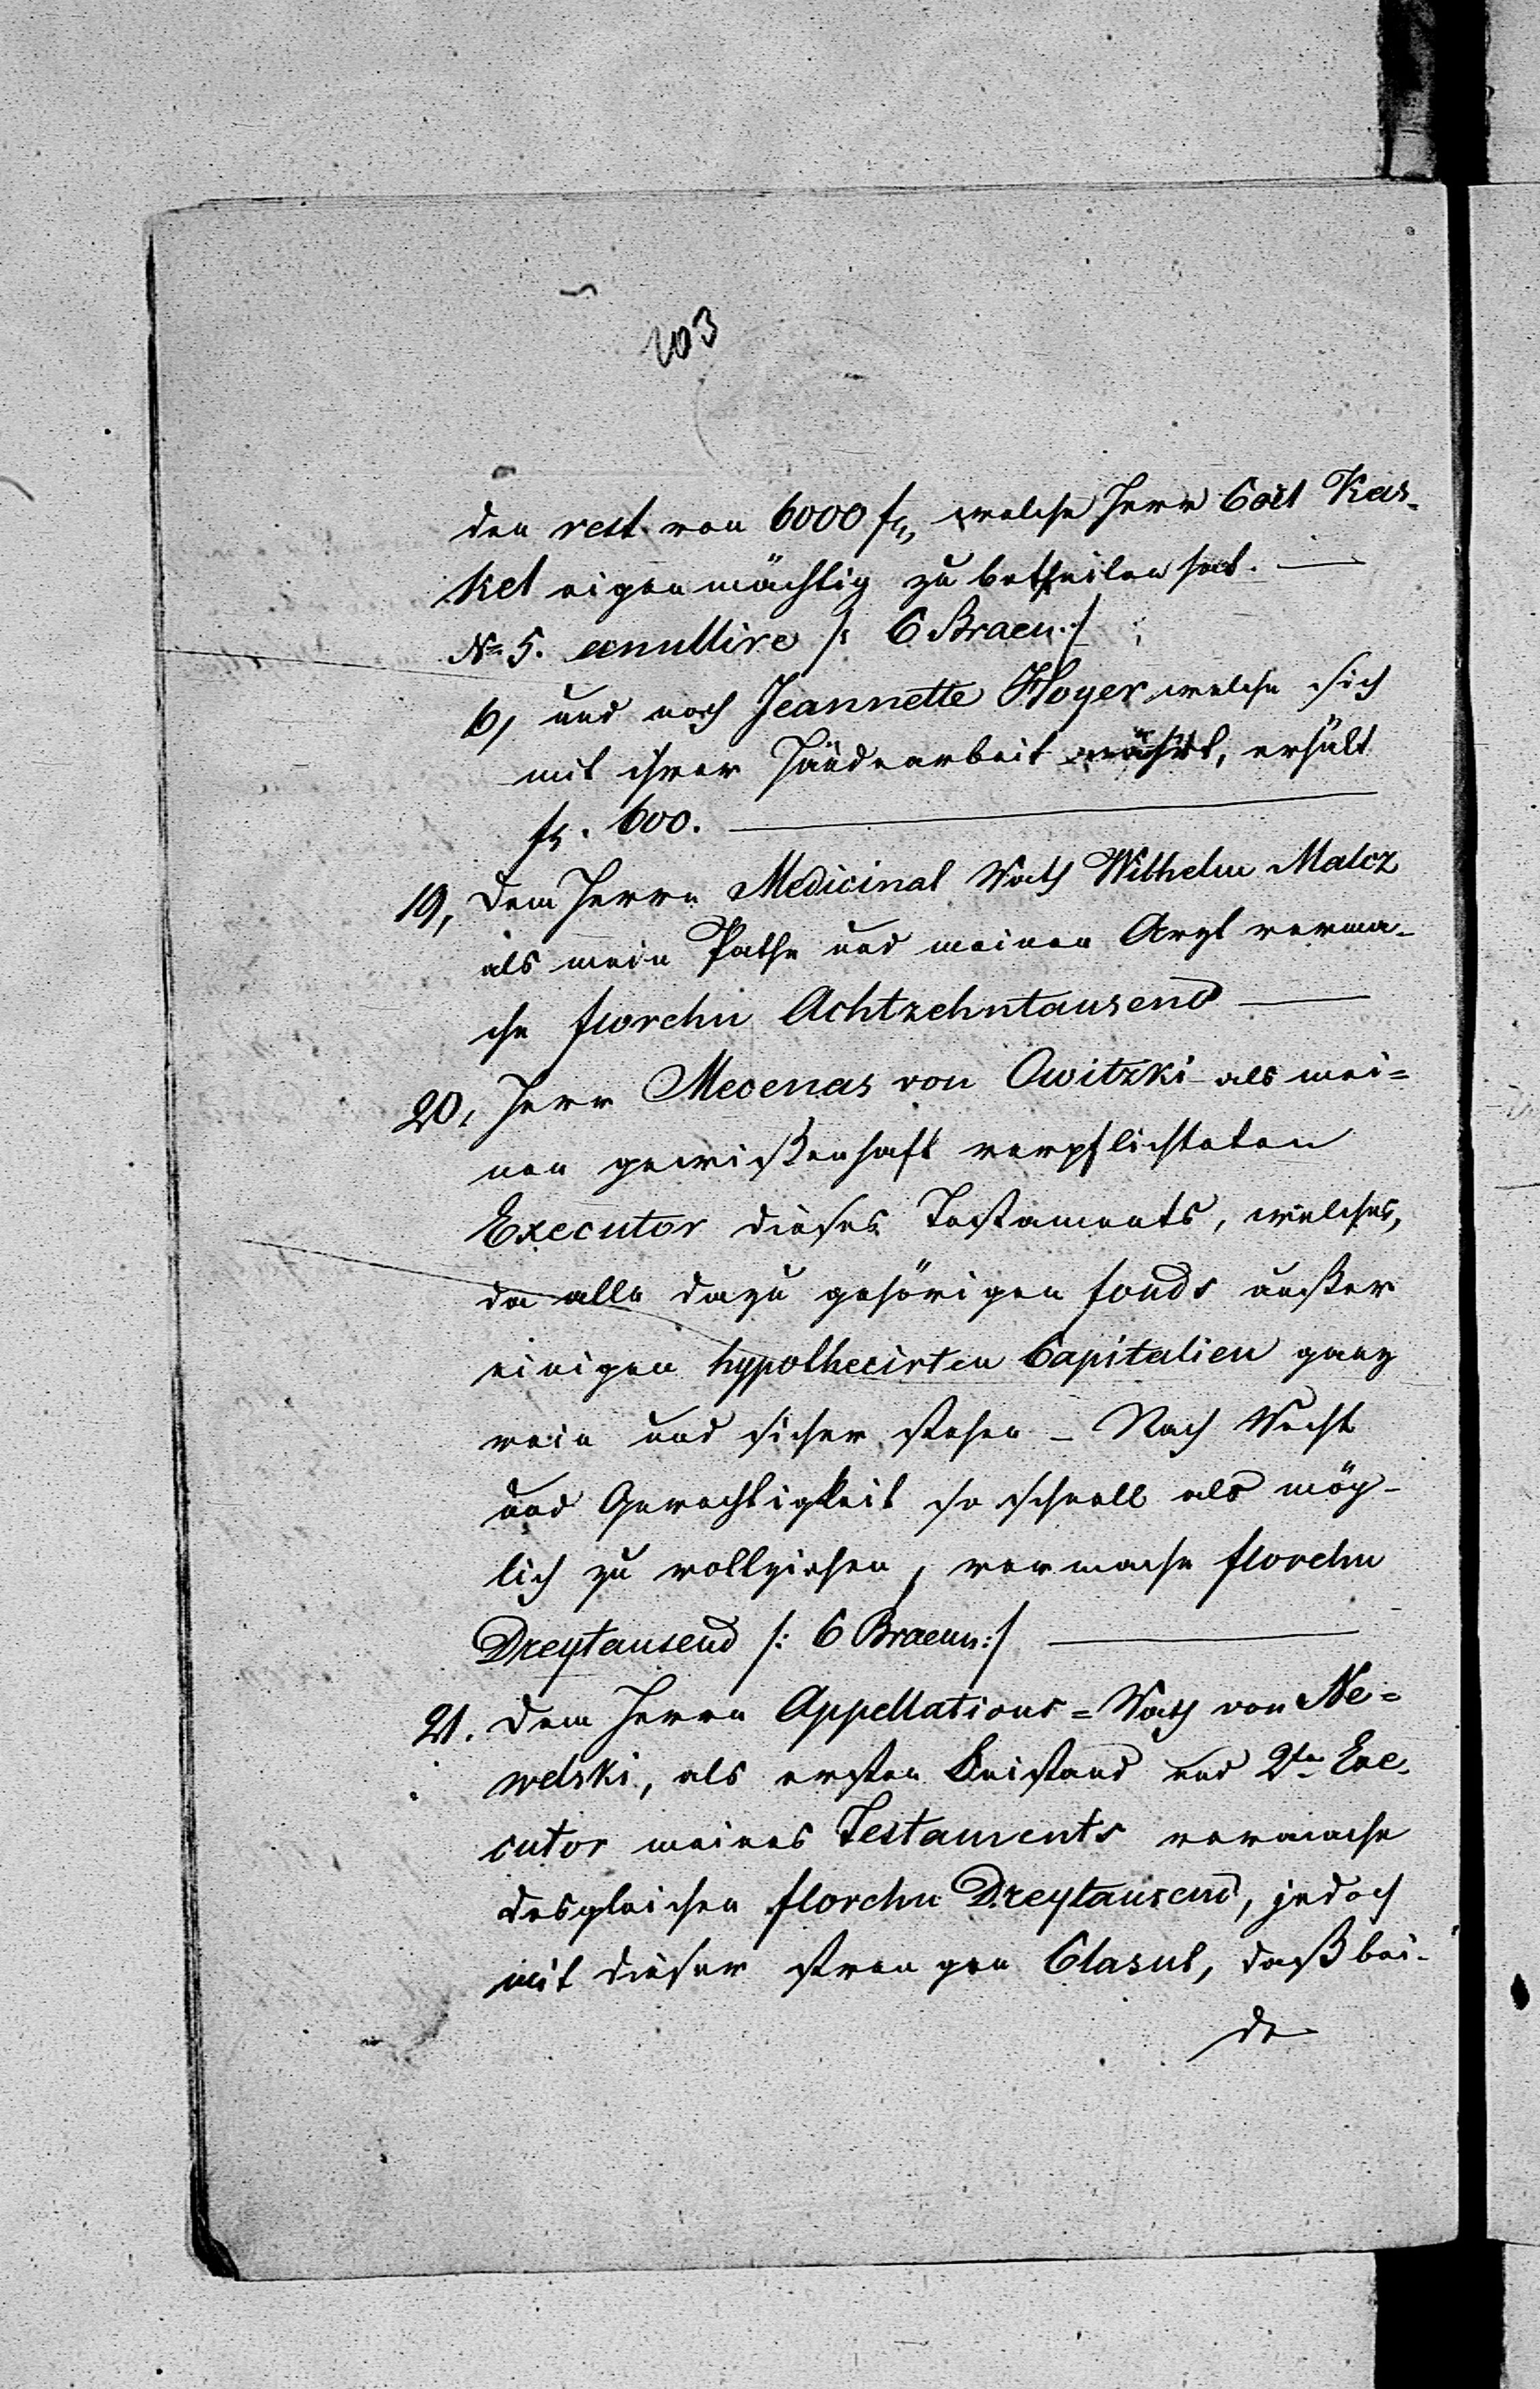 203
den rest von 6000 f, welche Herr Carl Kas-
kel eigenmächtig zu betheilen hat. —
No 5. annullire /: C Braeu :/
6, und noch Jeannette Hoyer welche sich
mit ihrer Händearbeit nährt, erhält
f. 600. —
19, Dem Herrn Medicinal Rath Wilhelm Malcz
als mein Pathe und meinen Arzt verma-
che florehn Achtzehntausend —
20, Herr Mecenas von Owitzki als mei=
nen gewißenhaft verpflichteten
Executor dieses Testaments, welches,
da alle dazu gehörigen fonds außer
einigen hypothecirten Capitalien ganz
rein und sicher stehen – Nach Recht
und Gerechtigkeit so schnell als mög-
lich zu vollziehen, vermache florehn
Dreytausend /: C Braeun :/ —
21. Dem Herrn Appellations=Rath von Ne=
welski, als ersten Beistand und 2ten Exe-
cutor meines Testaments vermache
desgleichen florehn Dreytausend, jedoch
mit dieser strengen Clasul, daß bei-
de